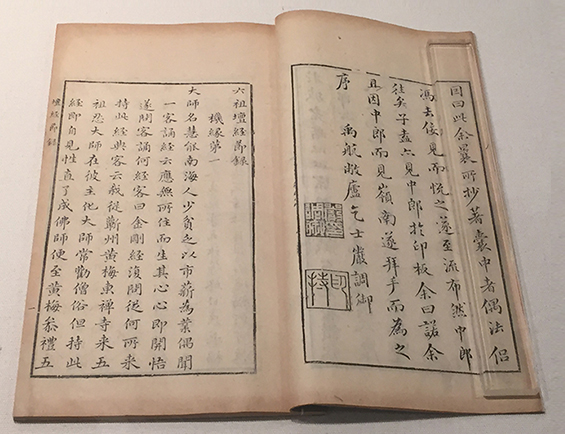 因曰此余曩所抄著囊中者偶法侶
馮去侫見而悅之遂至流布然中郎
往矣子盍六見中郎於印板余曰諾余
且因中郎而見嶺南遂拜手而為之
序
禹航敝廬乞士嚴調御
印持
六祖壇經節錄
機緣第一
大師名慧能南海人少貧乏以市薪為業偶聞
一客誦經云應無所住而生其心心即開悟
遂問客誦何經客曰金剛經復問從何所來
持此經典客云我從蘄州黃梅東禪寺來五
祖忍大師在彼主化大師常勸僧俗但持此
經即自見性直了成佛師便至黃梅叅禮五
壇經節錄
一